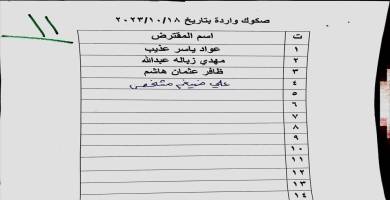 ١١
صكوك واردة بتاريخ ٢٠٢٣/١٠/١٨
ت اسم المقترض
١ عواد ياسر عذيب
٢ مهدي زباله عبدالله
٣ ظافر عثمان هاشم
٤ علي
٥
٦
٧
٨
٩
١٠
١١
١٢
١٣
١٤